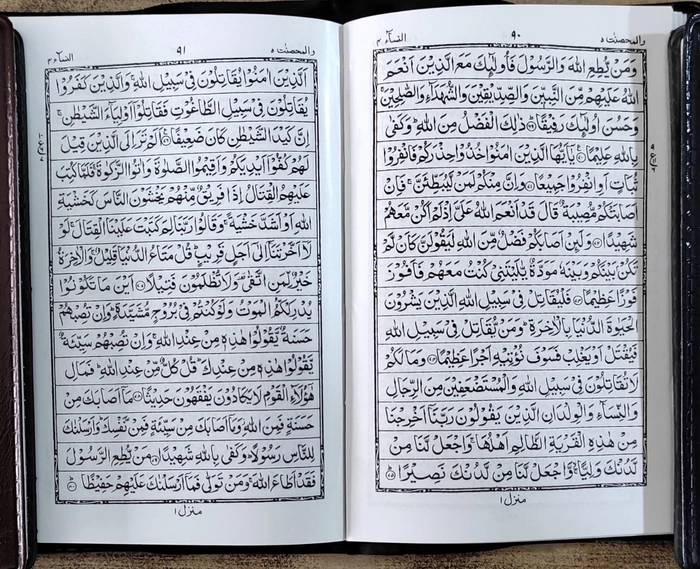 والمحصنت ٥
٩٠
النسآء ٤
وَمَنْ يُّطِعِ اللّٰهَ وَالرَّسُوْلَ فَاُولٰٓئِكَ مَعَ الَّذِيْنَ اَنْعَمَ
اللّٰهُ عَلَيْهِمْ مِّنَ النَّبِيّٖنَ وَالصِّدِّيْقِيْنَ وَالشُّهَدَآءِ وَالصّٰلِحِيْنَ
وَحَسُنَ اُولٰٓئِكَ رَفِيْقًا ۝٦٩ ذٰلِكَ الْفَضْلُ مِنَ اللّٰهِ وَكَفٰى
بِاللّٰهِ عَلِيْمًا ۝٧٠ يٰٓاَيُّهَا الَّذِيْنَ اٰمَنُوْا خُذُوْا حِذْرَكُمْ فَانْفِرُوْا
ثُبَاتٍ اَوِ انْفِرُوْا جَمِيْعًا ۝٧١ وَاِنَّ مِنْكُمْ لَمَنْ لَّيُبَطِّئَنَّ فَاِنْ
اَصَابَتْكُمْ مُّصِيْبَةٌ قَالَ قَدْ اَنْعَمَ اللّٰهُ عَلَيَّ اِذْ لَمْ اَكُنْ مَّعَهُمْ
شَهِيْدًا ۝٧٢ وَلَئِنْ اَصَابَكُمْ فَضْلٌ مِّنَ اللّٰهِ لَيَقُوْلَنَّ كَاَنْ لَّمْ
تَكُنْۢ بَيْنَكُمْ وَبَيْنَهٗ مَوَدَّةٌ يّٰلَيْتَنِيْ كُنْتُ مَعَهُمْ فَاَفُوْزَ
فَوْزًا عَظِيْمًا ۝٧٣ فَلْيُقَاتِلْ فِيْ سَبِيْلِ اللّٰهِ الَّذِيْنَ يَشْرُوْنَ
الْحَيٰوةَ الدُّنْيَا بِالْاٰخِرَةِ وَمَنْ يُّقَاتِلْ فِيْ سَبِيْلِ اللّٰهِ
فَيُقْتَلْ اَوْ يَغْلِبْ فَسَوْفَ نُؤْتِيْهِ اَجْرًا عَظِيْمًا ۝٧٤ وَمَا لَكُمْ
لَا تُقَاتِلُوْنَ فِيْ سَبِيْلِ اللّٰهِ وَالْمُسْتَضْعَفِيْنَ مِنَ الرِّجَالِ
وَالنِّسَآءِ وَالْوِلْدَانِ الَّذِيْنَ يَقُوْلُوْنَ رَبَّنَآ اَخْرِجْنَا
مِنْ هٰذِهِ الْقَرْيَةِ الظَّالِمِ اَهْلُهَا وَاجْعَلْ لَّنَا مِنْ
لَّدُنْكَ وَلِيًّا وَّاجْعَلْ لَّنَا مِنْ لَّدُنْكَ نَصِيْرًا ۝٧٥
منزل ١
والمحصنت ٥
٩١
النسآء ٤
اَلَّذِيْنَ اٰمَنُوْا يُقَاتِلُوْنَ فِيْ سَبِيْلِ اللّٰهِ وَالَّذِيْنَ كَفَرُوْا
يُقَاتِلُوْنَ فِيْ سَبِيْلِ الطَّاغُوْتِ فَقَاتِلُوْٓا اَوْلِيَآءَ الشَّيْطٰنِ
اِنَّ كَيْدَ الشَّيْطٰنِ كَانَ ضَعِيْفًا ۝٧٦ اَلَمْ تَرَ اِلَى الَّذِيْنَ قِيْلَ
لَهُمْ كُفُّوْٓا اَيْدِيَكُمْ وَاَقِيْمُوا الصَّلٰوةَ وَاٰتُوا الزَّكٰوةَ فَلَمَّا كُتِبَ
عَلَيْهِمُ الْقِتَالُ اِذَا فَرِيْقٌ مِّنْهُمْ يَخْشَوْنَ النَّاسَ كَخَشْيَةِ
اللّٰهِ اَوْ اَشَدَّ خَشْيَةً وَقَالُوْا رَبَّنَا لِمَ كَتَبْتَ عَلَيْنَا الْقِتَالَ لَوْ
لَآ اَخَّرْتَنَآ اِلٰٓى اَجَلٍ قَرِيْبٍ قُلْ مَتَاعُ الدُّنْيَا قَلِيْلٌ وَالْاٰخِرَةُ
خَيْرٌ لِّمَنِ اتَّقٰى وَلَا تُظْلَمُوْنَ فَتِيْلًا ۝٧٧ اَيْنَ مَا تَكُوْنُوْا
يُدْرِكْكُّمُ الْمَوْتُ وَلَوْ كُنْتُمْ فِيْ بُرُوْجٍ مُّشَيَّدَةٍ وَاِنْ تُصِبْهُمْ
حَسَنَةٌ يَّقُوْلُوْا هٰذِهٖ مِنْ عِنْدِ اللّٰهِ وَاِنْ تُصِبْهُمْ سَيِّئَةٌ
يَّقُوْلُوْا هٰذِهٖ مِنْ عِنْدِكَ قُلْ كُلٌّ مِّنْ عِنْدِ اللّٰهِ فَمَالِ
هٰٓؤُلَآءِ الْقَوْمِ لَا يَكَادُوْنَ يَفْقَهُوْنَ حَدِيْثًا ۝٧٨ مَآ اَصَابَكَ مِنْ
حَسَنَةٍ فَمِنَ اللّٰهِ وَمَآ اَصَابَكَ مِنْ سَيِّئَةٍ فَمِنْ نَّفْسِكَ وَاَرْسَلْنٰكَ
لِلنَّاسِ رَسُوْلًا وَكَفٰى بِاللّٰهِ شَهِيْدًا ۝٧٩ مَنْ يُّطِعِ الرَّسُوْلَ
فَقَدْ اَطَاعَ اللّٰهَ وَمَنْ تَوَلّٰى فَمَآ اَرْسَلْنٰكَ عَلَيْهِمْ حَفِيْظًا ۝٨٠
منزل ١